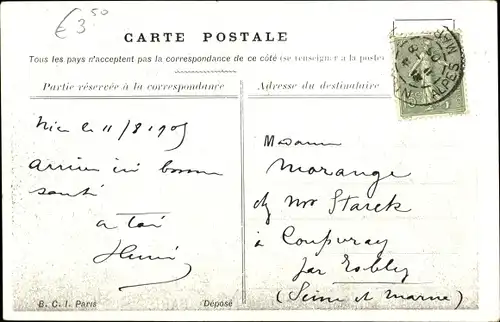 € 3,50
CARTE POSTALE
Tous les pays n'acceptent pas la correspondance de ce côté (se renseigner à la poste)
Partie réservée à la correspondance
Adresse du destinataire
Nice le 11/8/1905
arrivé ici bonne
santé
a toi
Henri
Madame
Morange
chz Mr Starck
à Coupvray
par Esbly
(Seine et Marne)
B. C. I. Paris
Déposé
ALPES MAR